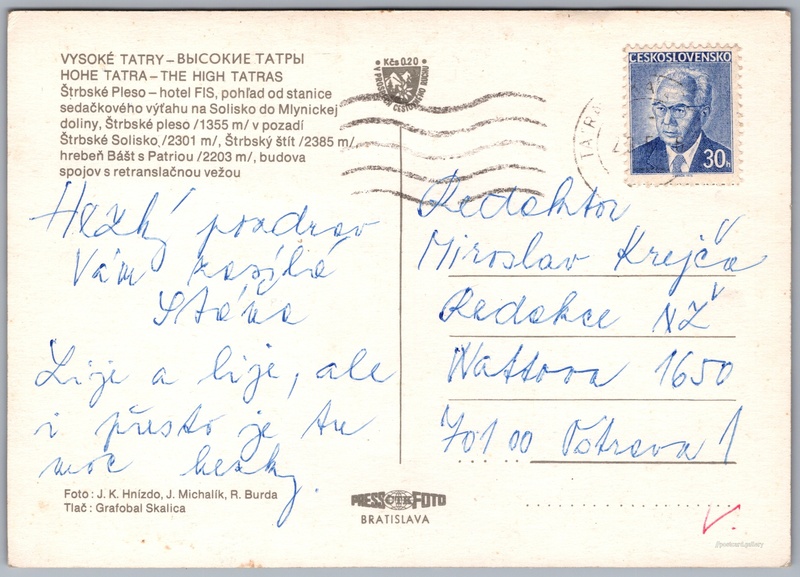 VYSOKÉ TATRY – ВЫСОКИЕ ТАТРЫ
HOHE TATRA – THE HIGH TATRAS
Štrbské Pleso – hotel FIS, pohľad od stanice
sedačkového výťahu na Solisko do Mlynickej
doliny, Štrbské pleso /1355 m/ v pozadí
Štrbské Solisko /2301 m/, Štrbský štít /2385 m/,
hrebeň Bášt s Patriou /2203 m/, budova
spojov s retranslačnou vežou
Kčs 0,20
V PROSPECH CESTOVNÉHO RUCHU
ČESKOSLOVENSKO
30h
Hezký pozdrav
Vám zasílá
Sláva
Lije a lije, ale
i přesto je tu
moc hezky.
Redaktor
Miroslav Krejča
Redakce NŽ
Wattova 1650
701 00 Ostrava 1
Foto: J. K. Hnízdo, J. Michalík, R. Burda
Tlač: Grafobal Skalica
PRESSFOTO
BRATISLAVA